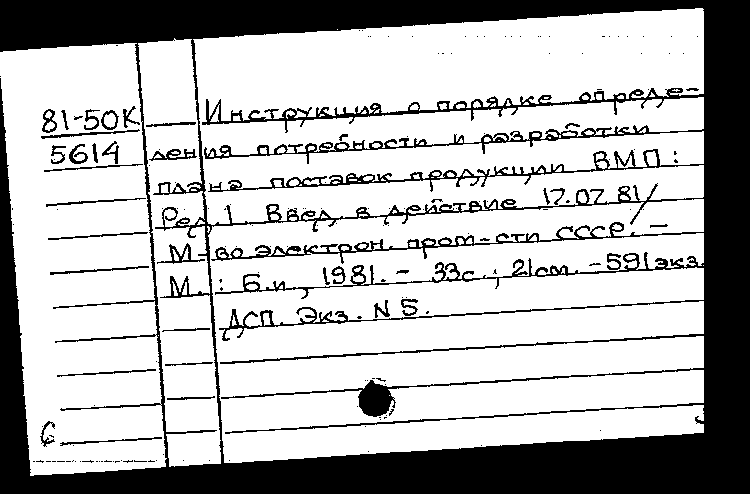 81-50К Инструкция о порядке опреде-
5614 ления потребности и разработки
плана поставок продукции ВМП:
Ред. 1. Введ. в действие 17.07.81/
М-во электрон. пром-сти СССР. –
М.: Б.и., 1981. – 33с.; 21см. – 591экз.
ДСП. Экз. N 5.
6